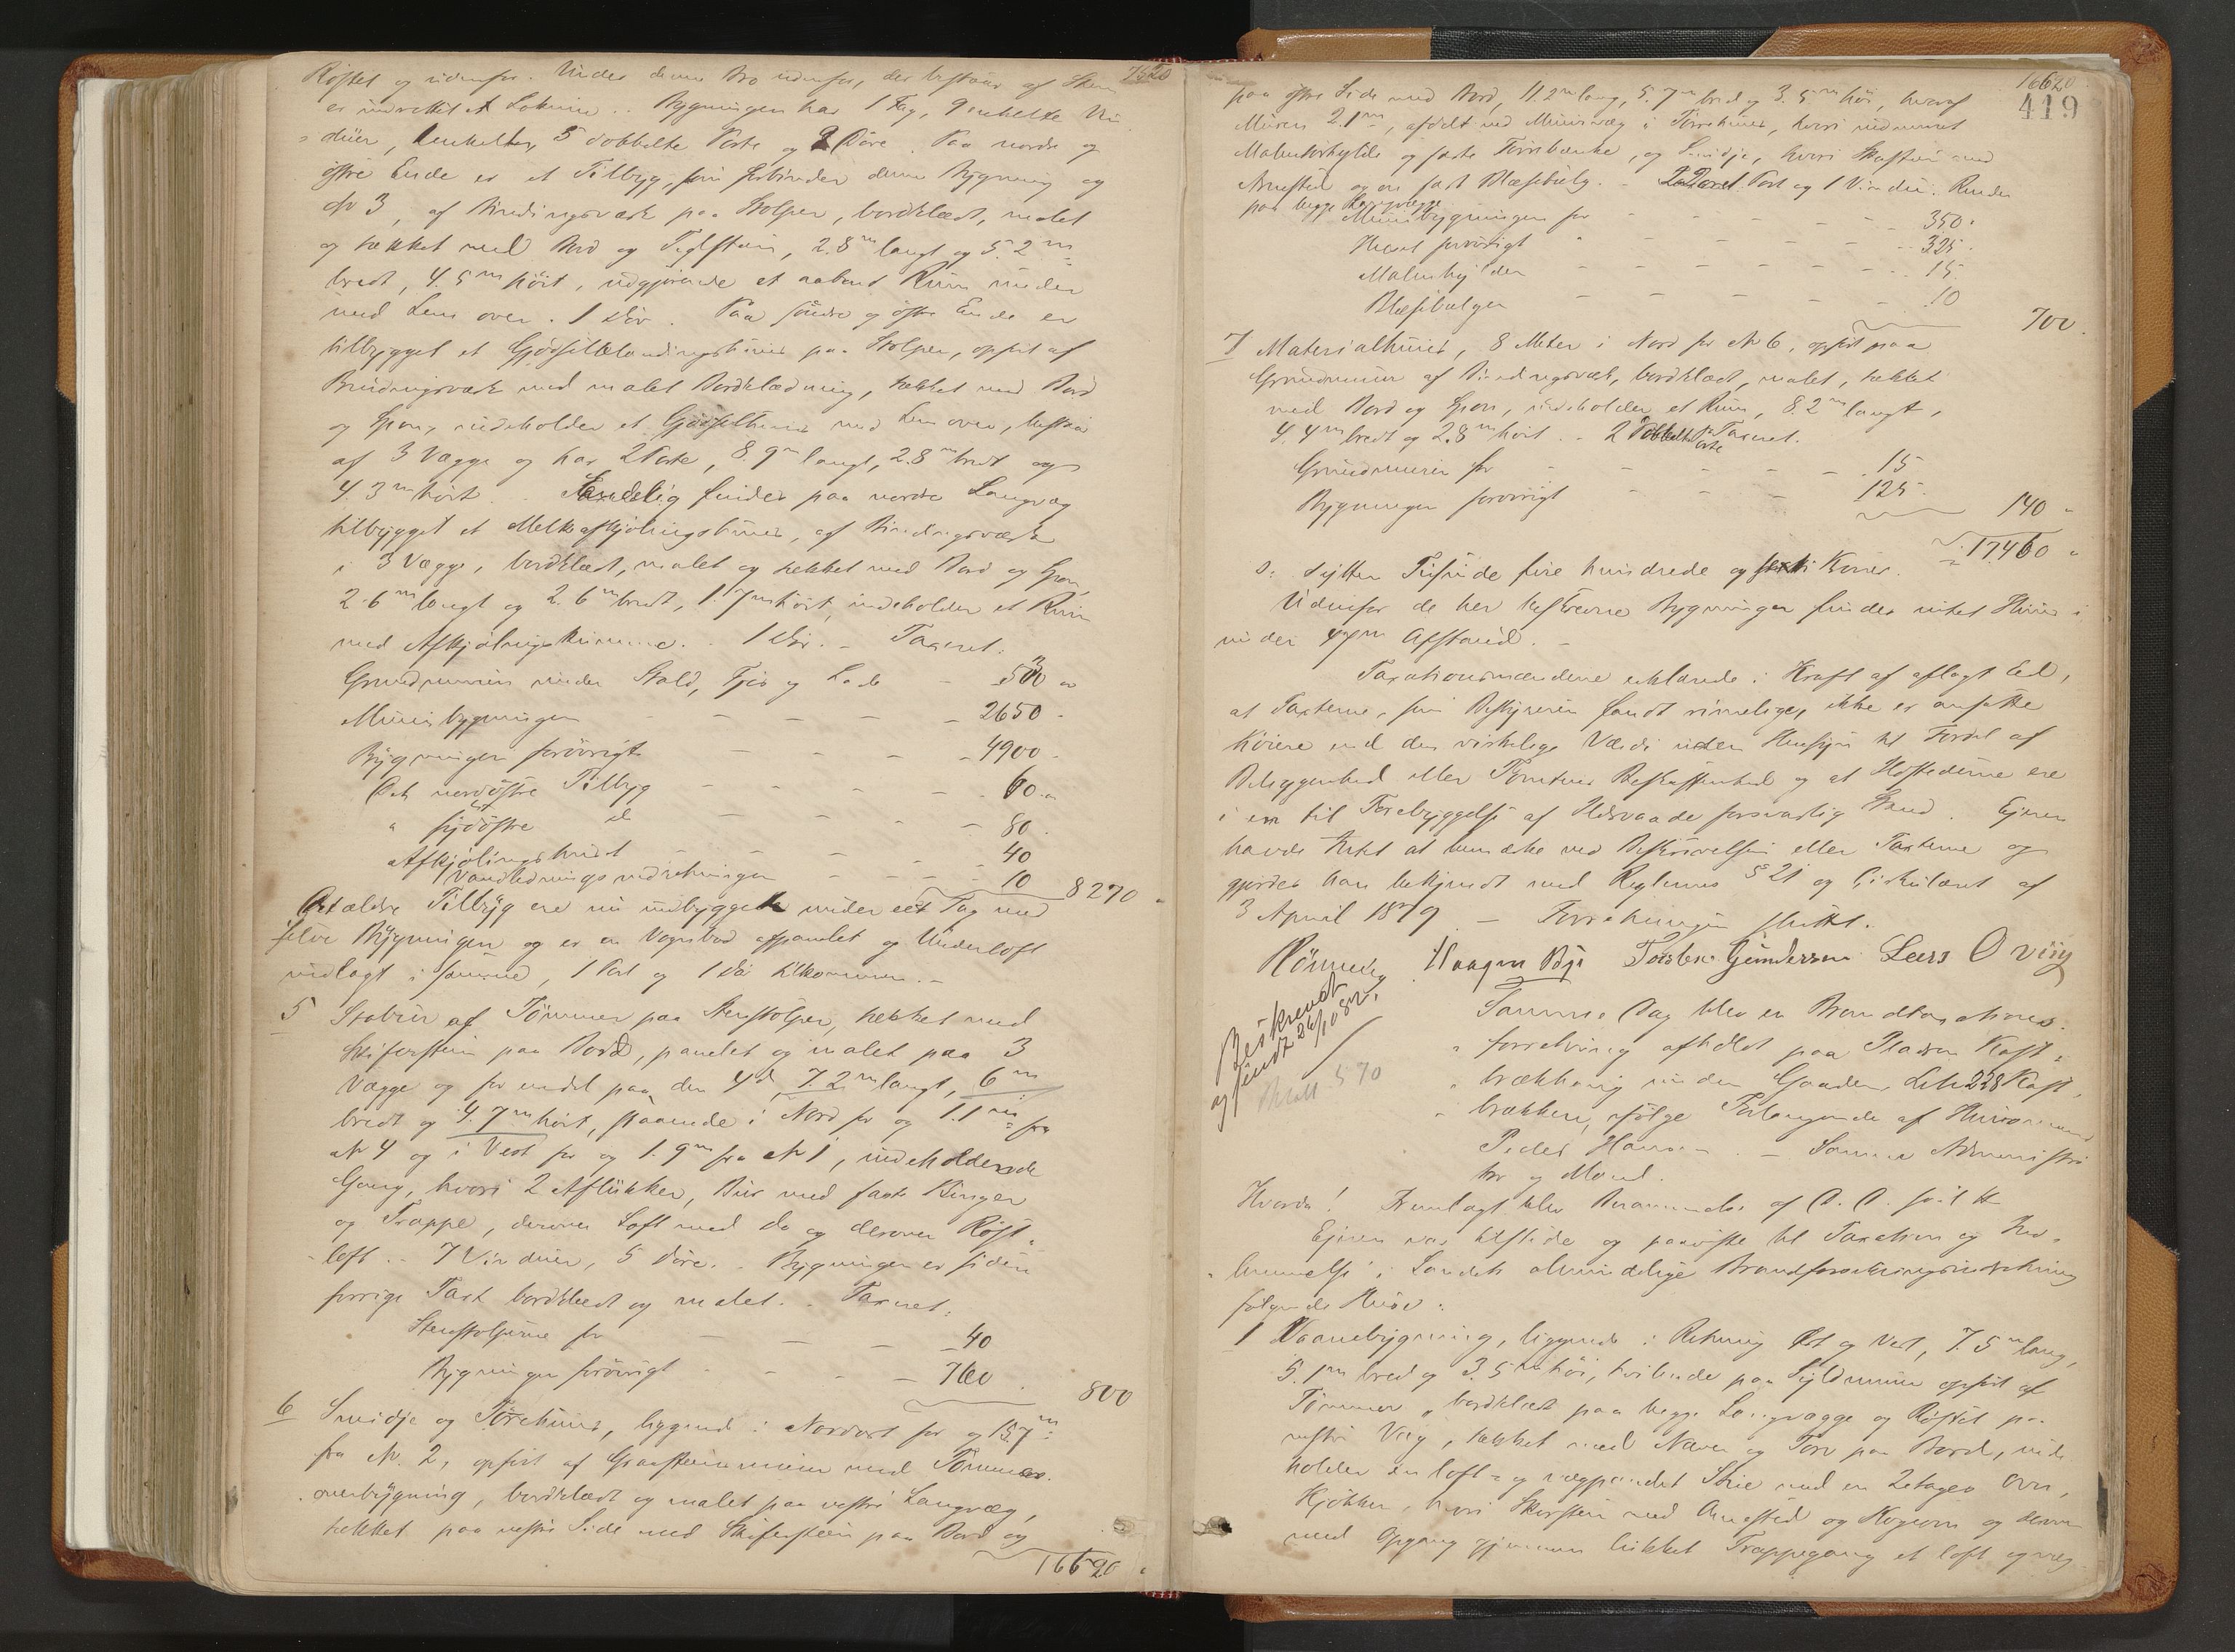 7520
Røstet og udenfor. Under denne Bro udenfor, der bestaar af Sten
er indrettet et Lokume. Bygningen har 1 Fag, 9 enkelte Vin
duer, enkelte, 5 dobbelte Porte og 2 Døre. Paa nordre og
østre Ende er et Tilbyg, som forbinder denne Bygning og
No 3, af Bindingsværk paa Stolper, bordklædt, malet
og tækket med Bord og Teglsten, 2.8 m langt og 5.2 m
bredt, 4.5 m høit, udgjørende et aabent Rum under
med Lem over. 1 Dør. Paa søndre og østre Ende er
tilbygget et Gjødselblandingshuus paa Stolper, opført af
Bindingsværk med malet Bordklædning, tækket med Bord
og Spon, indeholder et Gjødselhuus med Lem over, bestaar
af 3 Vægge og har 2 Porte, 8.9 m langt, 2.8 m bredt og
4.3 m høit. Endelig findes paa nordre Langvæg
tilbygget et Melkeafkjølingshuus, af Bindingsværk
i 3 Vægge, bordklædt, malet og tækket med Bord og Spon,
2.6 m langt og 2.6 m bredt, 1.7 m høit, indeholder et Rum
med Afkjølingskumme. 1 Dør. Taxeret:
Grundmuren under Stald, Fjøs og Lade - 530
Muurbygningen - 2650
Bygningen forøvrigt - 4900
Det nordøstre Tilbyg - 60
" sydøstre do - 80
Afkjølingshuset - 40
Vandledningsindretningen - 10
8270
Det ældre Tilbyg ere nu indbygget under eet Tag med
selve Bygningen og er en Vognbod afpanelet og Underloft
indlagt i samme, 1 Port og 1 Dør tilkommen.
5 Stabur af Tømmer paa Stenstolper, tækket med
Skifersten paa Bord, panelet og malet paa 3
Vægge og for endel paa den 4de, 7.2 m langt, 6 m
bredt og 4.7 m høit, staaende i Nord for og 11 m fra
No 4 og i Vest for og 1.9 m fra No 1, indeholdende
Gang, hvori 2 Aflukker, Bur med faste Binger
og Trappe, derover Loft med do og derover Røst-
loft. 7 Vinduer, 5 Døre. Bygningen er siden
forrige Taxt bordklædt og malet. Taxeret:
Stenstolperne for - 40
Bygningen forøvrigt - 760
800
6 Smidje og Tørrehuus, liggende i Nordost for og 15.7 m
fra No. 2, opført af Graastensmuur med Tømmer-
overbygning, bordklædt og malet paa vestre Langvæg,
tækket paa vestre Side med Skifersten paa Bord og
16620
16620
419
paa østre Side med Bord, 11.2 m lang, 5.7 m bred og 3.5 m høi, hvoraf
Muren 2.1 m, afdelt ved Muurvæg i Tørrehuus, hvori indmuret
Maltørkehylde og faste Tørrebænke, og Smidje, hvori Skorsten med
Arnested og en fast Blæsebælg. 2 Døre 1 Port og 1 Vindu. Render
paa begge Langvægge.
Muurbygningen for - 350
Huset forøvrigt - 325
Maltehylden - 15
Blæsebælgen - 10
700
7 Materialhuus, 8 Meter i Nord for No 6, opført paa
Grundmuur af Bindingsværk, bordklædt, malet, tækket
med Bord og Spon, indeholder et Rum, 8.2 m langt,
4.4 m bredt og 2.8 m høit. 2 dobbelte Porte Taxeret:
Grundmuren for - 15
Bygningen forøvrigt - 125
140
17460
o: Sytten Tusinde fire hundrede og sexti Kroner.
Udenfor de her beskrevne Bygninger findes intet Huus i
under Afstand.
Taxationsmændene erklærede i Kraft af aflagt Eed,
at Taxterne, som Bestyreren fandt rimelige, ikke er ansatte
høiere end den virkelige Værdi uden Hensyn til Fordel af
Beliggenhed eller Tomtens Beskaffenhed og at Ildstederne ere
i en til Forebyggelse af Ildsvaade forsvarlig Stand. Ejeren
havde Intet at bemærke ved Beskrivelsen eller Taxterne og
gjordes han bekjendt med Reglernes § 21 og Cirkulæret af
3 April 1879. - Forretningen sluttet.
Rönneby Haagen Bje Torsten Gundersen Lars Oving
Beskrevet
og sendt 26/10 82.
Samme Dag blev en Brandtaxations-
forretning afholdt paa Pladsen Kast-
brækhaug under Gaarden L No 228 Kast-
brækken, ifølge Forlangende af Huusmand
Peder Hansen. - Samme Administra
tor og Mænd.
Hvorda! Fremlagt blev Berammelse af D. D. saal.
Ejeren var tilstede og paaviste til Taxation og Ind-
lemmelse i Landets almindelige Brandforsikringsindretning
følgende Huse:
1 Vaanebygning, liggende i Retning Øst og Vest, 7.5 m lang,
5.1 m bred og 3.5 m høi, hvilende paa Syldmuur opført af
Tømmer, bordklædt paa begge Langvægge og Røstet paa
vestre Væg, tækket med Næver og Torv paa Bord, inde
holder en loft- og vægpanelet Stue med en 2 etages Ovn,
Kjøkken, hvori Skorsten med Arnested og Kogeovn og derover
med Opgang gjennem lukket Trappegang et loft og væg